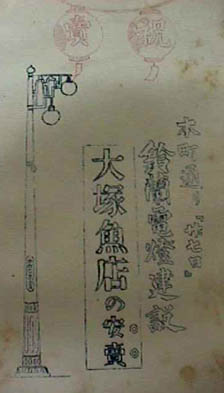 祝賣
本町通り「廿七日」
鈴蘭電燈建設
大塚魚店の安賣